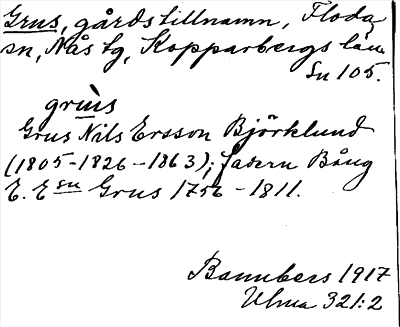 Grus, gårdstillnamn, Floda
sn, Nås tg, Kopparbergs län
Sn 105.
grùs
Grus Nils Ersson Björklund
(1805-1826-1863); fadern Bång
E. Esn Grus 1756-1811.
Bannbers 1917
Ulma 321:2